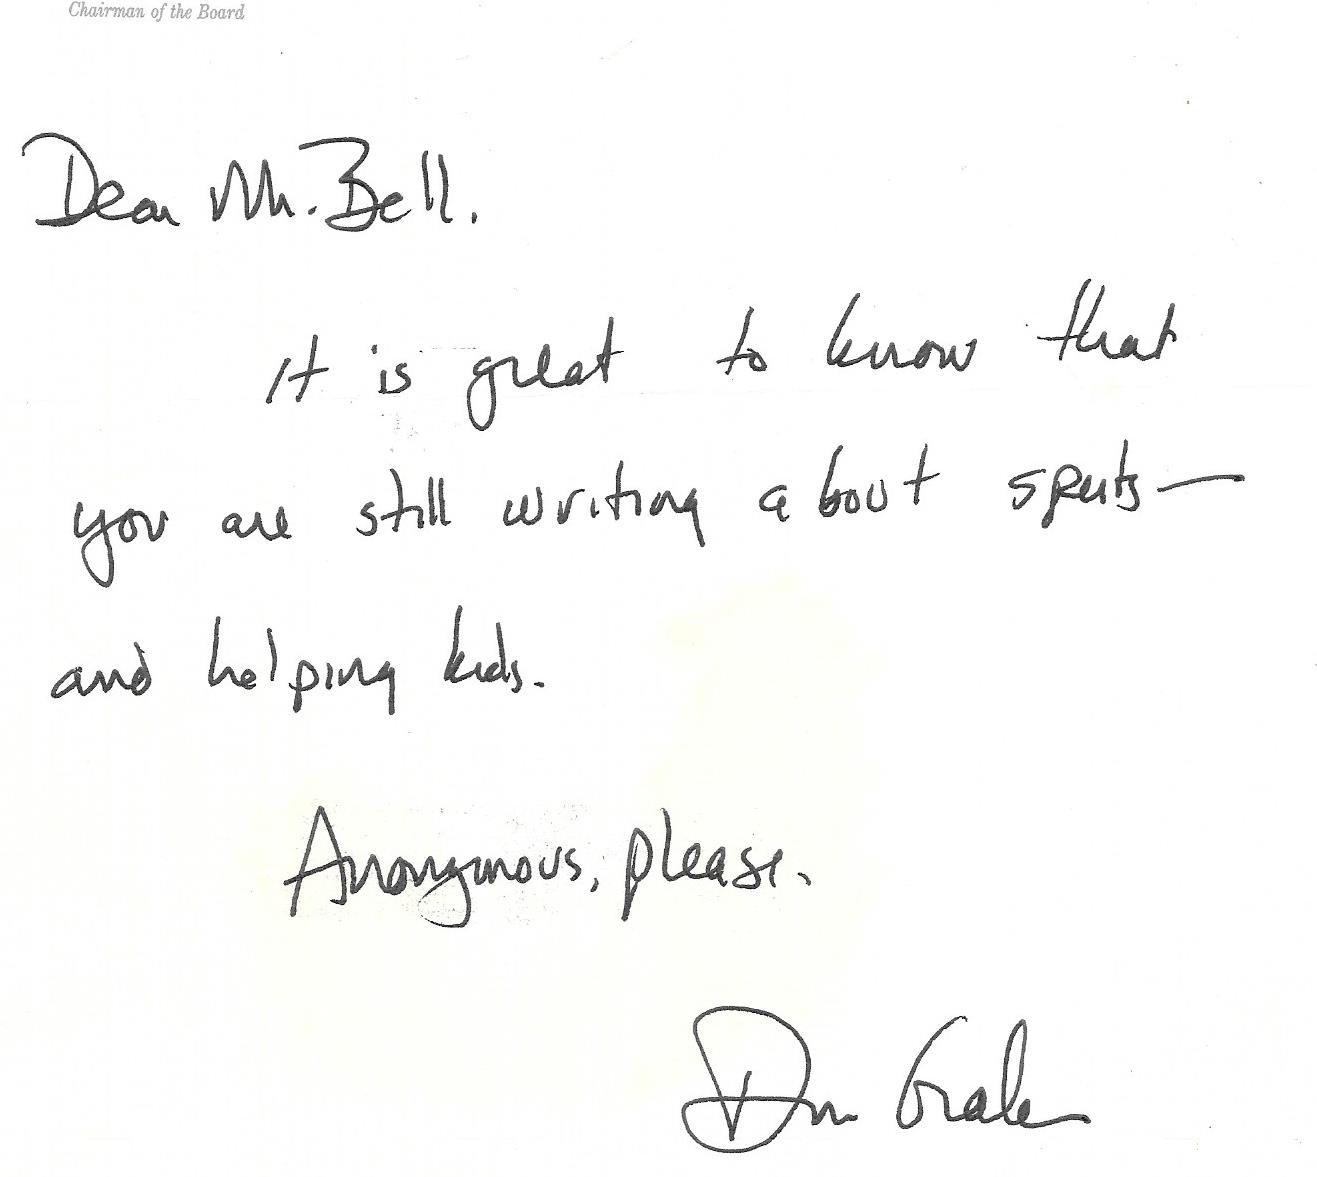 Chairman of the Board
Dear Mr. Bell.
It is great to know that
you are still writing about sports—
and helping kids.
Anonymous, please.
Don Graham